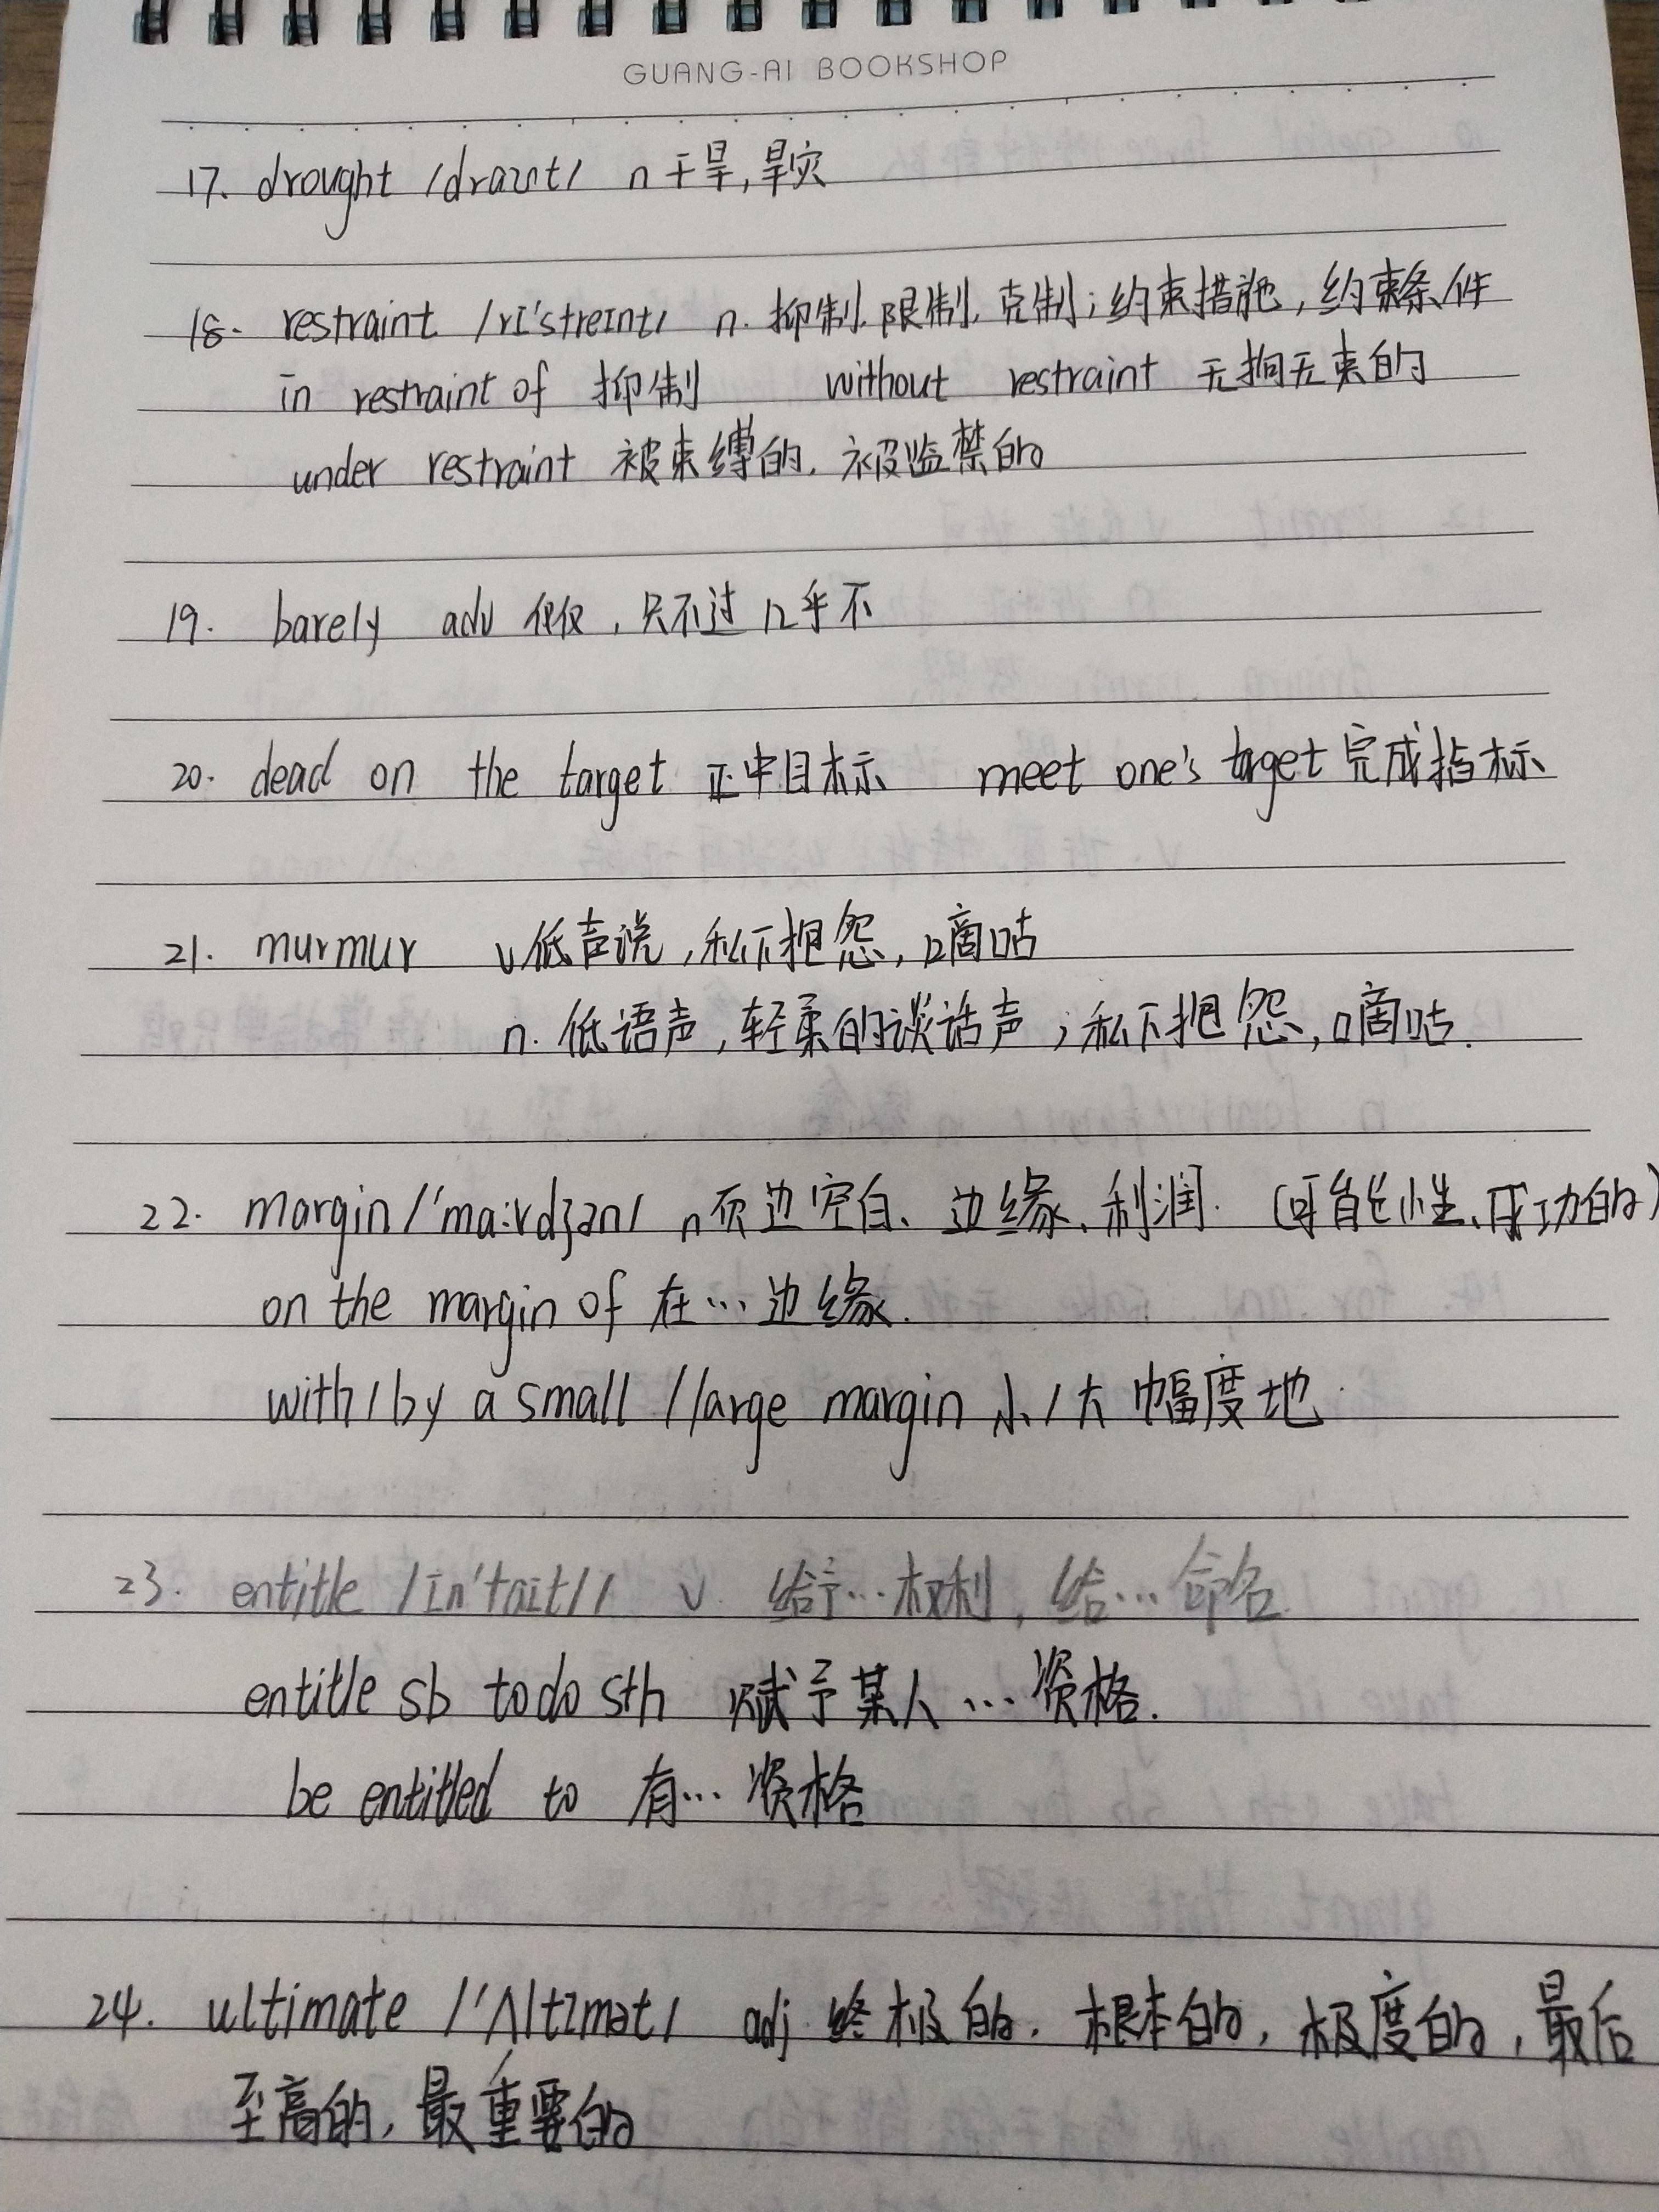 GUANG-AI BOOKSHOP
17. drought /draʊt/ n 干旱,旱灾
18. restraint /rɪ'streɪnt/ n. 抑制,限制,克制;约束措施,约束条件
in restraint of 抑制 without restraint 无拘无束的
under restraint 被束缚的,被监禁的
19. barely adv 仅仅,只不过 几乎不
20. dead on the target 正中目标 meet one's target 完成指标
21. murmur v 低声说,私下抱怨,嘀咕
n. 低语声,轻柔的谈话声;私下抱怨,嘀咕.
22. margin /'ma:rdʒən/ n 页边空白、边缘、利润. (可能性、成功的)
on the margin of 在…边缘.
with/by a small /large margin 小/大幅度地.
23. entitle /ɪn'taɪtl/ v. 给予…权利,给…命名.
entitle sb to do sth 赋予某人…资格.
be entitled to 有…资格
24. ultimate /'ʌltɪmət/ adj 终极的.根本的,极度的,最后
至高的,最重要的